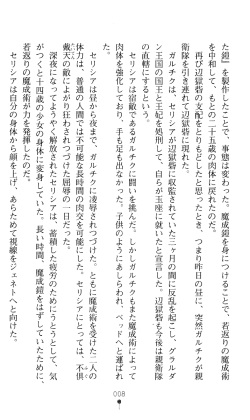 た鎧〟を製作したことで、事態は変わった。魔成鎧が、若返りの魔術
を中和して、もとの二十五歳の体に戻れたのだ。
再び辺獄砦の支配をとりもどしたと思ったとき、つまり昨日の昼に、突然ガルチクが親
衛隊を引き連れて辺獄砦に現れた。
ガルチクは、セリシアが辺獄砦に収監されていた三ヶ月の間に反乱を起こし、グラルダ
ン王国の国王と王妃を処刑して、自らが玉座に就いたと宣言した。辺獄砦も今後は親衛隊
の直轄にするという。
セリシアは宿敵であるガルチクに戦いを挑んだ。しかしガルチクもまた魔成術によって
肉体を強化しており、まったく歯が立たなかった。子供のようにあしらわれ、ベッドへと運ばれ
セリシアは昼から夜まで、ガルチクに凌辱されつづけた。ともに魔術を受けた二人の
肉体は、普通の人間では不可能な長時間の肉交を可能にする。セリシアにとっては、不倶
戴天の敵により狂わされつづけた屈辱の一日だった。
深夜になってようやく解放されたセリシアは、蓄積した疲労のためにもどって、気
がつくと十四歳の少女の身体に変身していた。長い時間、魔成鎧をはずしていたために、
若返の魔成術が力を発揮したのだ。
セリシアは自分の身体から顔を上げ、あらためて視線をジェネトへと向けた。
008